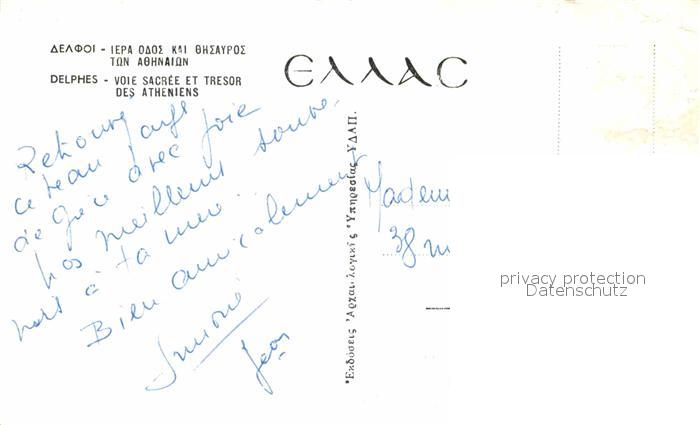 ΔΕΛΦΟΙ - ΙΕΡΑ ΟΔΟΣ ΚΑΙ ΘΗΣΑΥΡΟΣ
ΤΩΝ ΑΘΗΝΑΙΩΝ
DELPHES - VOIE SACRÉE ET TRESOR
DES ATHENIENS
ΕΛΛΑC
ce avec joie
de Grèce
Nos meilleurs souve-
nirs à ta mère.
Bien amicalement
Simone
Jean
Ἐκδόσεις Ἀρχαιολογικῆς Ὑπηρεσίας ΥΔΑΠ.
Madem
38
privacy protection
Datenschutz